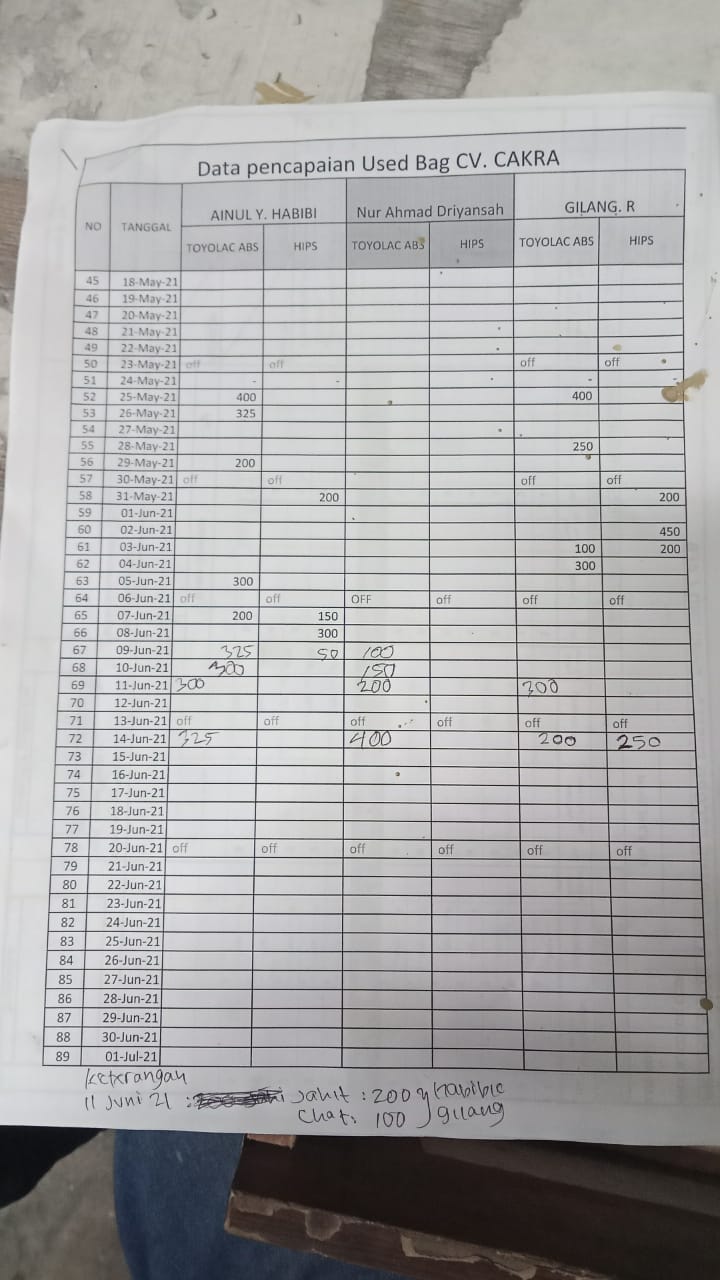 Data pencapaian Used Bag CV. CAKRA
NO TANGGAL AINUL Y. HABIBI Nur Ahmad Driyansah GILANG. R
TOYOLAC ABS HIPS TOYOLAC ABS HIPS TOYOLAC ABS HIPS
45 18-May-21
46 19-May-21
47 20-May-21
48 21-May-21
49 22-May-21
50 23-May-21 off off off off
51 24-May-21 - - -
52 25-May-21 400 400
53 26-May-21 325
54 27-May-21
55 28-May-21 250
56 29-May-21 200
57 30-May-21 off off off off
58 31-May-21 200 200
59 01-Jun-21
60 02-Jun-21 450
61 03-Jun-21 100 200
62 04-Jun-21 300
63 05-Jun-21 300
64 06-Jun-21 off off OFF off off off
65 07-Jun-21 200 150
66 08-Jun-21 300
67 09-Jun-21 325 50 100
68 10-Jun-21 300 150
69 11-Jun-21 300 200 300
70 12-Jun-21
71 13-Jun-21 off off off off off off
72 14-Jun-21 325 400 200 250
73 15-Jun-21
74 16-Jun-21
75 17-Jun-21
76 18-Jun-21
77 19-Jun-21
78 20-Jun-21 off off off off off off
79 21-Jun-21
80 22-Jun-21
81 23-Jun-21
82 24-Jun-21
83 25-Jun-21
84 26-Jun-21
85 27-Jun-21
86 28-Jun-21
87 29-Jun-21
88 30-Jun-21
89 01-Jul-21
keterangan
11 Juni 21 : Jahit : 200 habibie
Chat : 100 gilang